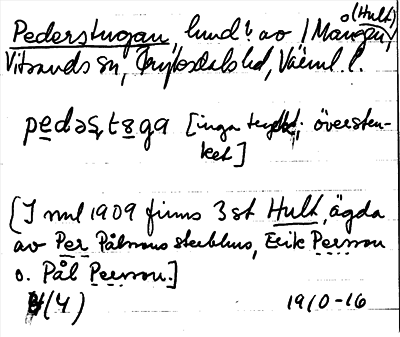 (Hult)
Pederstugan, lund? av / Mangen,
Vitsands sn, Fryksdals hd, Värml. l.
pedəs, tɜga [inga teckn; överstru-
ket]
[I mul 1909 finns 3 st Hult, ägda
av Per Pålssons sterbhus, Erik Persson
o. Pål Persson.]
(4) 1910-16